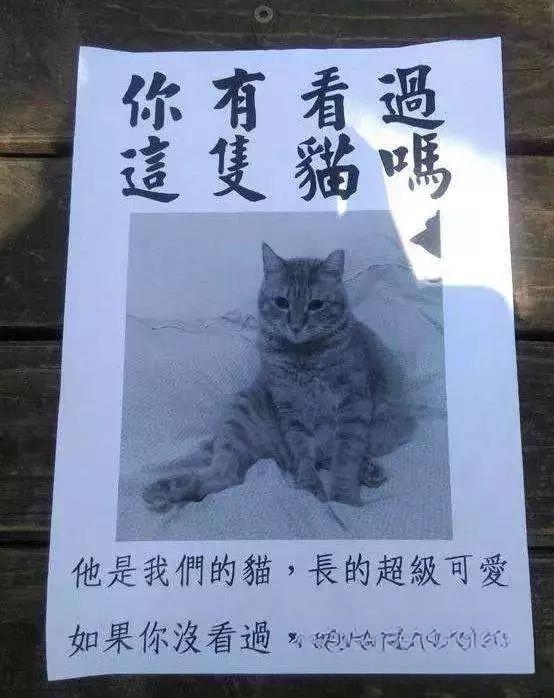 你有看過
這隻貓嗎
他是我們的貓，長的超級可愛
如果你沒看過，